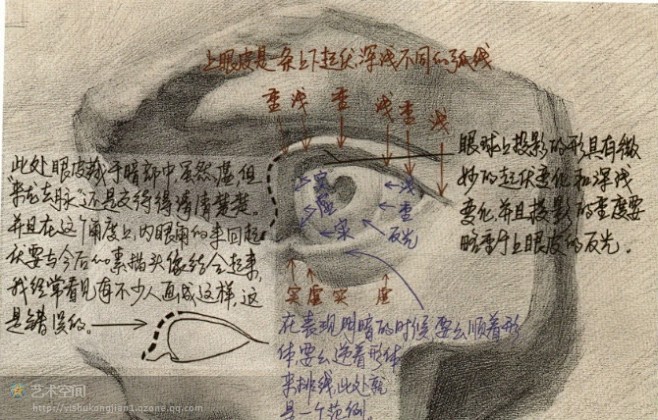 上眼皮是一条上下起伏、深浅不同的弧线
重 浅 重 浅 重 浅
此处眼皮藏于暗部中虽然虚,但
"来龙去脉"还是交待得清清楚楚。
并且在这个角度上,内眼角的来回起
伏要与今后的素描头像结合起来,
我经常看见有不少人画成这样,这
是错误的。
眼球上投影的形具有微
妙的起伏变化和深浅
变化,并且投影的重度要
略重于上眼皮的反光。
实
虚
实
浅
重
反光
实 虚 实 虚
在表现明暗的时候,要么顺着形
体,要么逆着形体
来排线,此处就
是一个范例。
艺术空间
http://yishukongjian1.qzone.qq.com